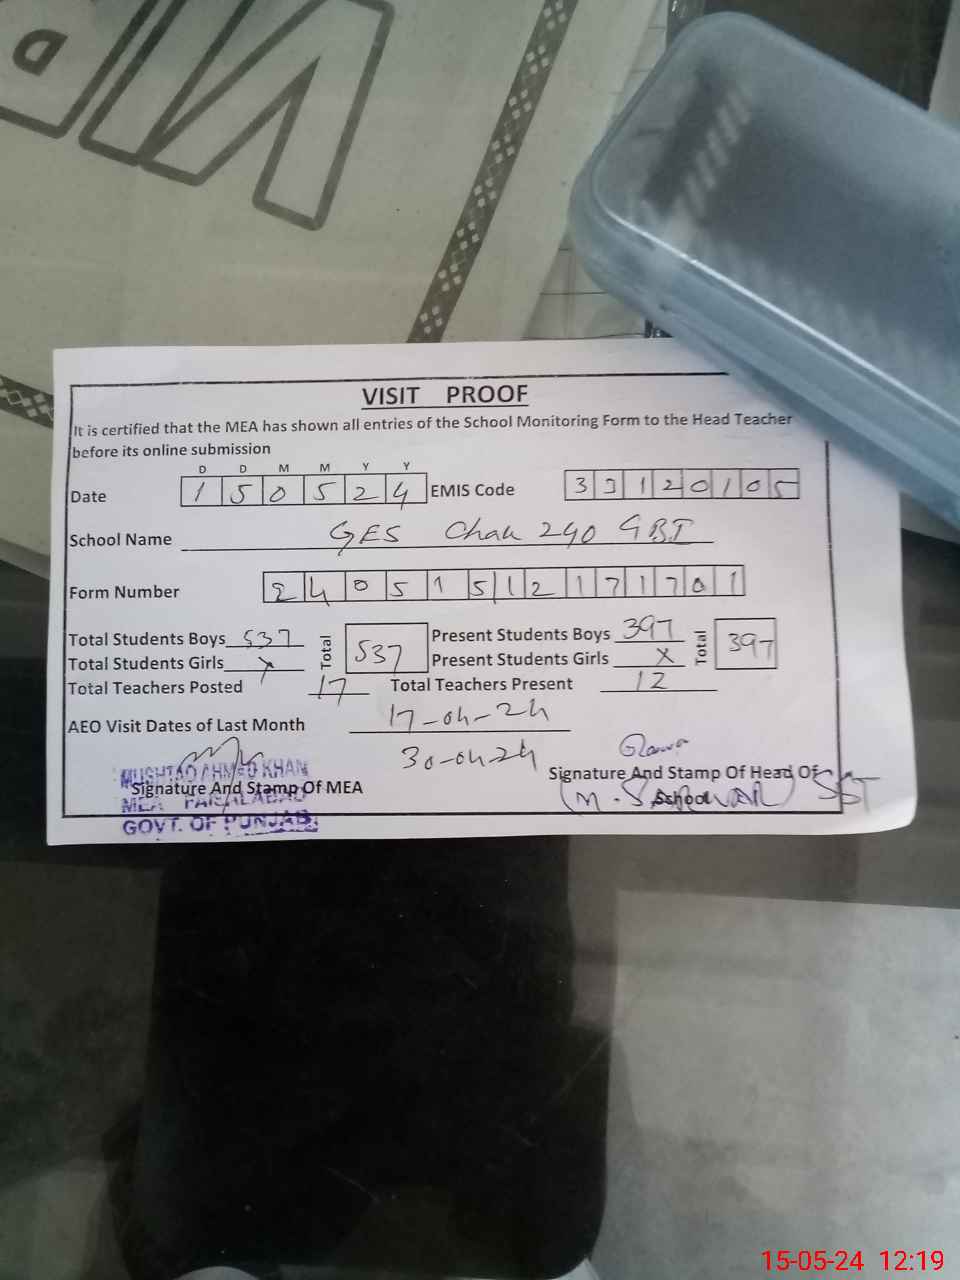 VISIT PROOF
It is certified that the MEA has shown all entries of the School Monitoring Form to the Head Teacher
before its online submission
D D M M Y Y
Date 1 5 0 5 2 4 EMIS Code 3 3 1 2 0 1 0 5
School Name GES Chak 240 GBI
Form Number 2 4 0 5 1 5 1 2 1 7 1 7 0 1
Total Students Boys 537 Total 537 Present Students Boys 397 Total 397
Total Students Girls x Present Students Girls x
Total Teachers Posted 17 Total Teachers Present 12
AEO Visit Dates of Last Month 17-04-24
30-04-24
MUSHTAQ AHMED KHAN
Signature And Stamp Of MEA Signature And Stamp Of Head Of School
MEA FAISALABAD (M. SARWAR) SST
GOVT. OF PUNJAB
15-05-24 12:19